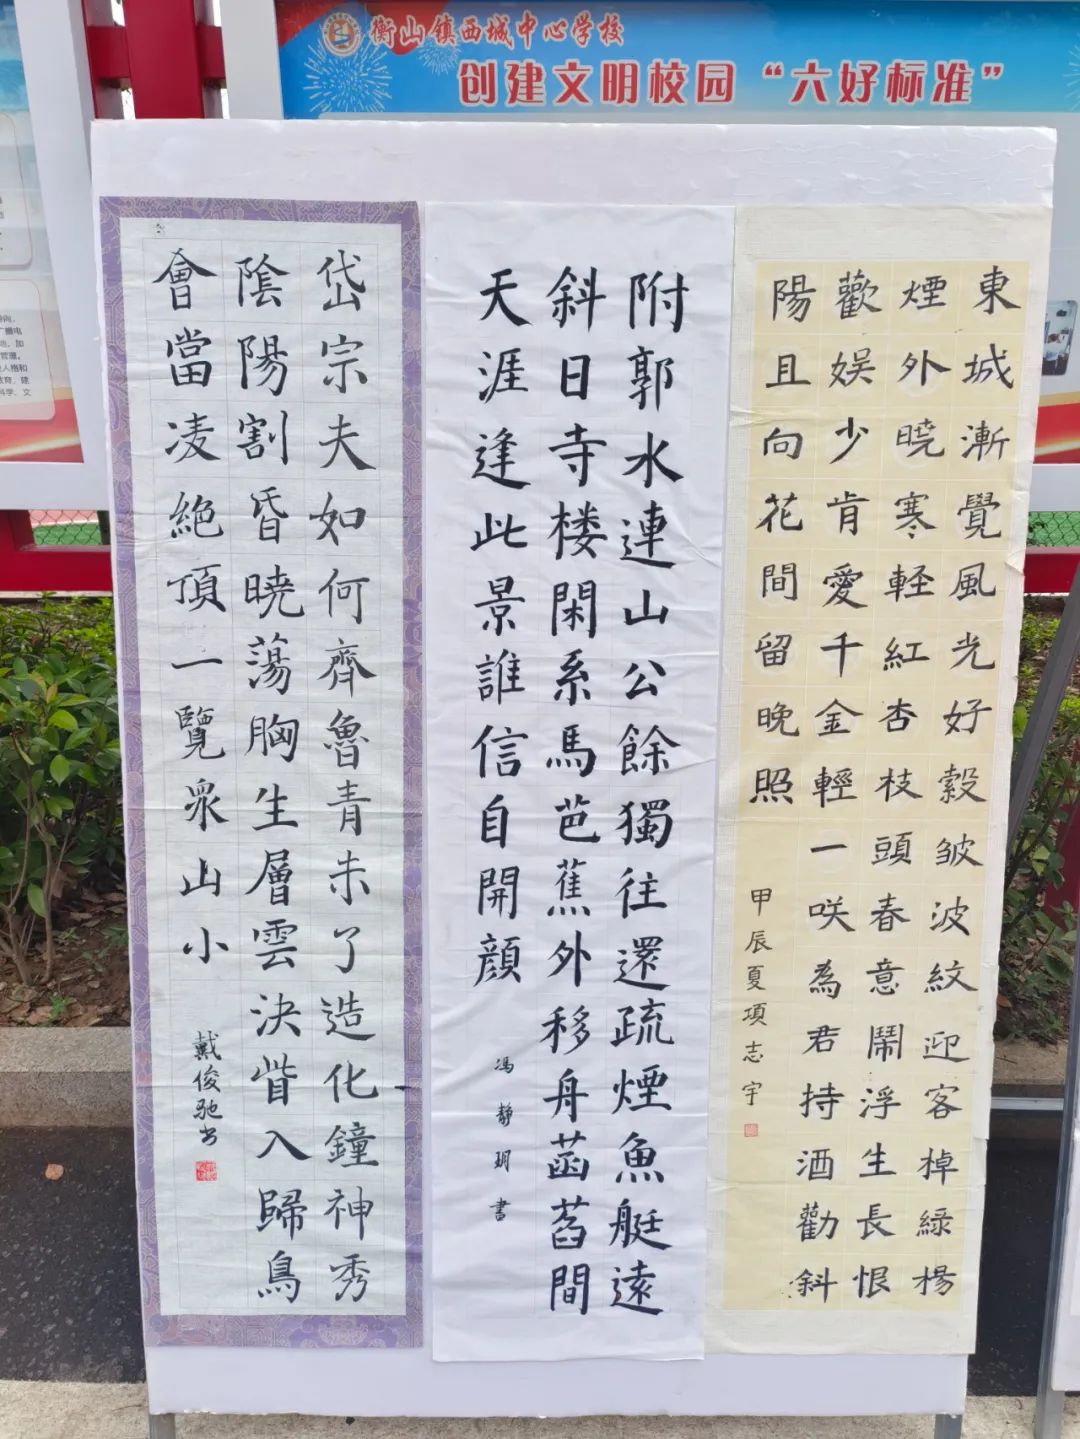 衡山镇西城中心学校
创建文明校园“六好标准”
東城漸覺風光好縠皺波紋迎客棹綠楊
煙外曉寒軽紅杏枝頭春意鬧浮生長恨
歡娯少肯愛千金輕一咲為君持酒勸斜
陽且向花間留晚照
甲辰夏項志宇
附郭水連山公餘獨往還疏煙魚艇遠
斜日寺楼閑系馬芭蕉外移舟菡萏間
天涯逢此景誰信自開顔
馮靜玥書
岱宗夫如何齊魯青未了造化鐘神秀
陰陽割昏曉蕩胸生層雲決眥入歸鳥
會當凌絕頂一覽眾山小
戴俊驰书